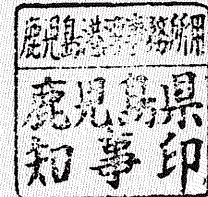 鹿児島港湾事務所用
鹿児島県
知事印